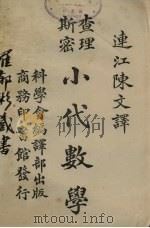 連江陳文譯
查理
斯密
小代數學
科學會編譯部出版
商務印書館發行
藏書